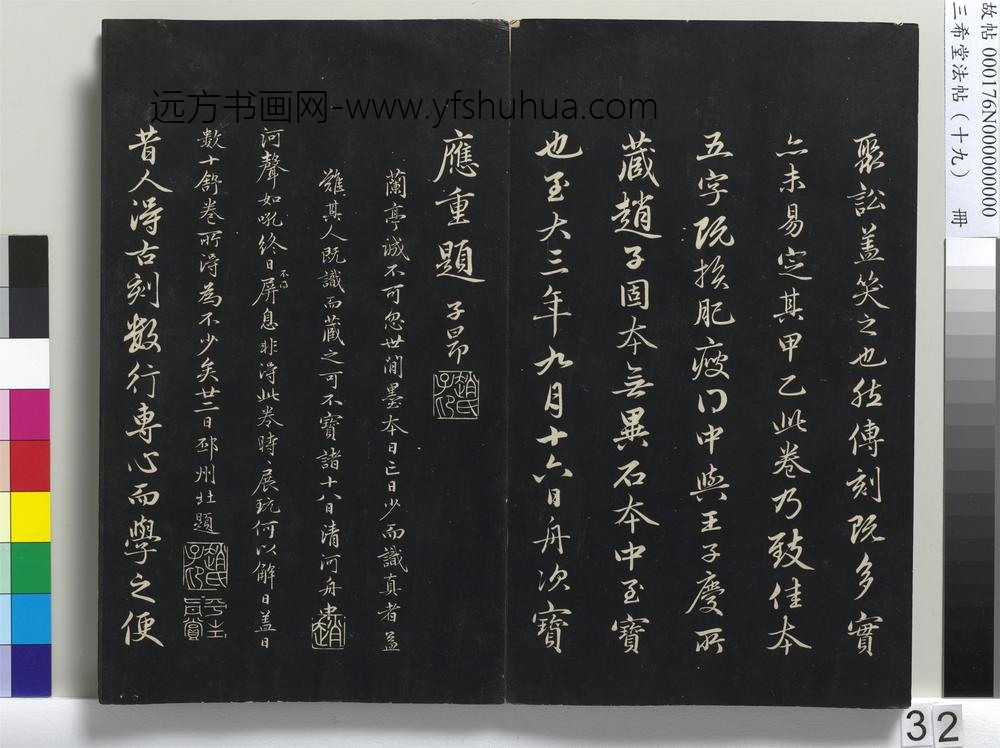 聚訟盖笑之也然傳刻既多實
亦未易定其甲乙此卷乃致佳本
五字既損肥瘦得中與王子慶所
藏趙子固本無異石本中至寶
也至大三年九月十六日舟次寶
應重題 子昂
蘭亭誠不可忽世間墨本日亡日少而識真者益
難其人既識而藏之可不寶諸十八日清河舟中
河聲如吼終日屏息非得此卷時展玩何以解日盖日
數十舒卷所得為不少矣廿二日邳州北題
平生真賞
昔人得古刻數行專心而學之便
远方书画网-www.yfshuhua.com
故帖 000176N000000000
三希堂法帖（十九） 冊
32